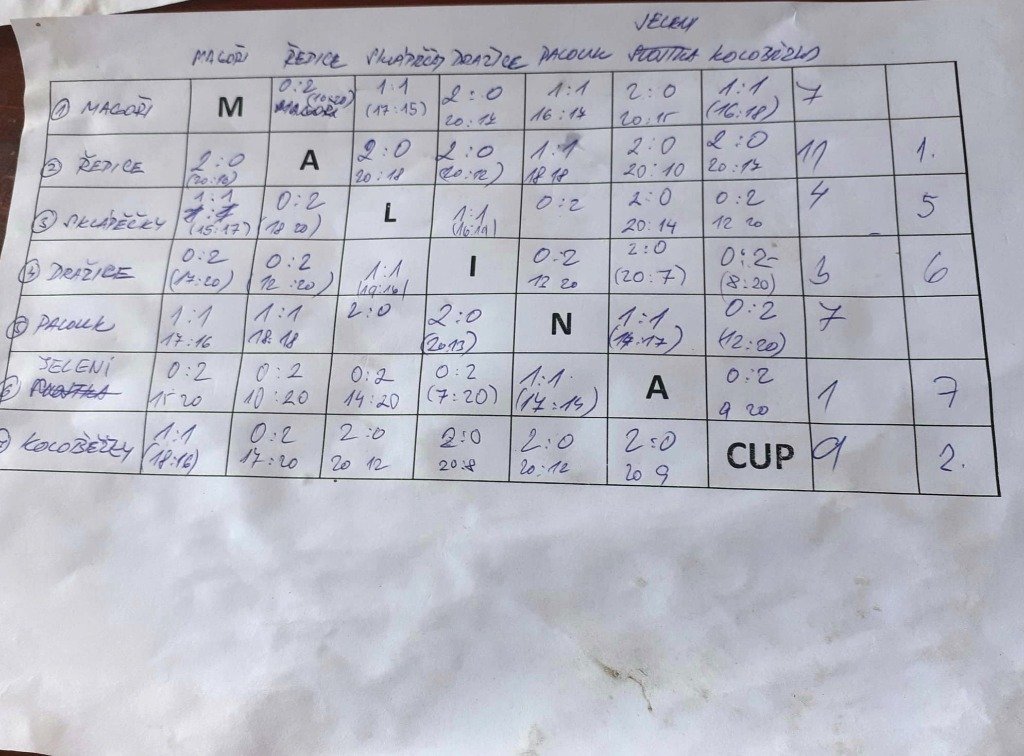 JELENI
MAGOŘI ŘEDICE SKLÁPĚČKY DRAŽICE PALOUK KOLOBĚŽKY
① MAGOŘI M 0:2 (10:20) 1:1 (17:15) 2:0 20:17 1:1 16:17 2:0 20:15 1:1 (16:18) 7
② ŘEDICE 2:0 (20:10) A 2:0 20:18 2:0 (20:12) 1:1 18 18 2:0 20:10 2:0 20:17 11 1.
③ SKLÁPĚČKY 1:1 (15:17) 0:2 (18 20) L 1:1 (16:19) 0:2 2:0 20:14 0:2 12 20 4 5
④ DRAŽICE 0:2 (17:20) 0:2 (12:20) 1:1 (19:16) I 0:2 12 20 2:0 (20:7) 0:2 (8:20) 3 6
⑤ PALOUK 1:1 17:16 1:1 18:18 2:0 2:0 (20 13) N 1:1 (14:17) 0:2 (12:20) 7
⑥ JELENI 0:2 15 20 0:2 10:20 0:2 14:20 0:2 (7:20) 1:1 (17:14) A 0:2 9 20 1 7
KOLOBĚŽKY 1:1 (18:16) 0:2 17:20 2:0 20 12 2:0 20:8 2:0 20:12 2:0 20 9 CUP 9 2.